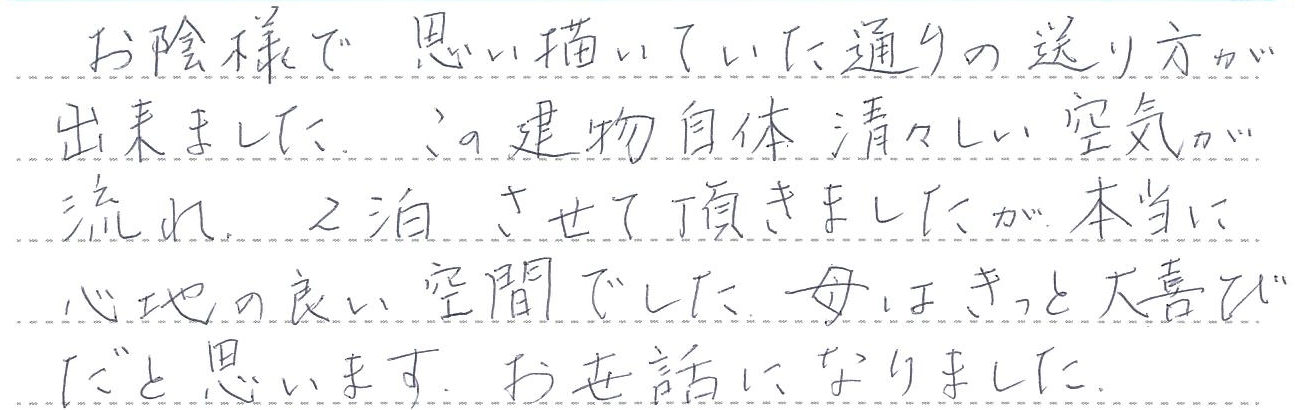 お陰様で 思い描いていた通りの送り方が
出来ました. この建物自体 清々しい空気が
流れ. 2泊 させて頂きましたが. 本当に
心地の良い空間でした. 母はきっと大喜び
だと思います. お世話になりました.